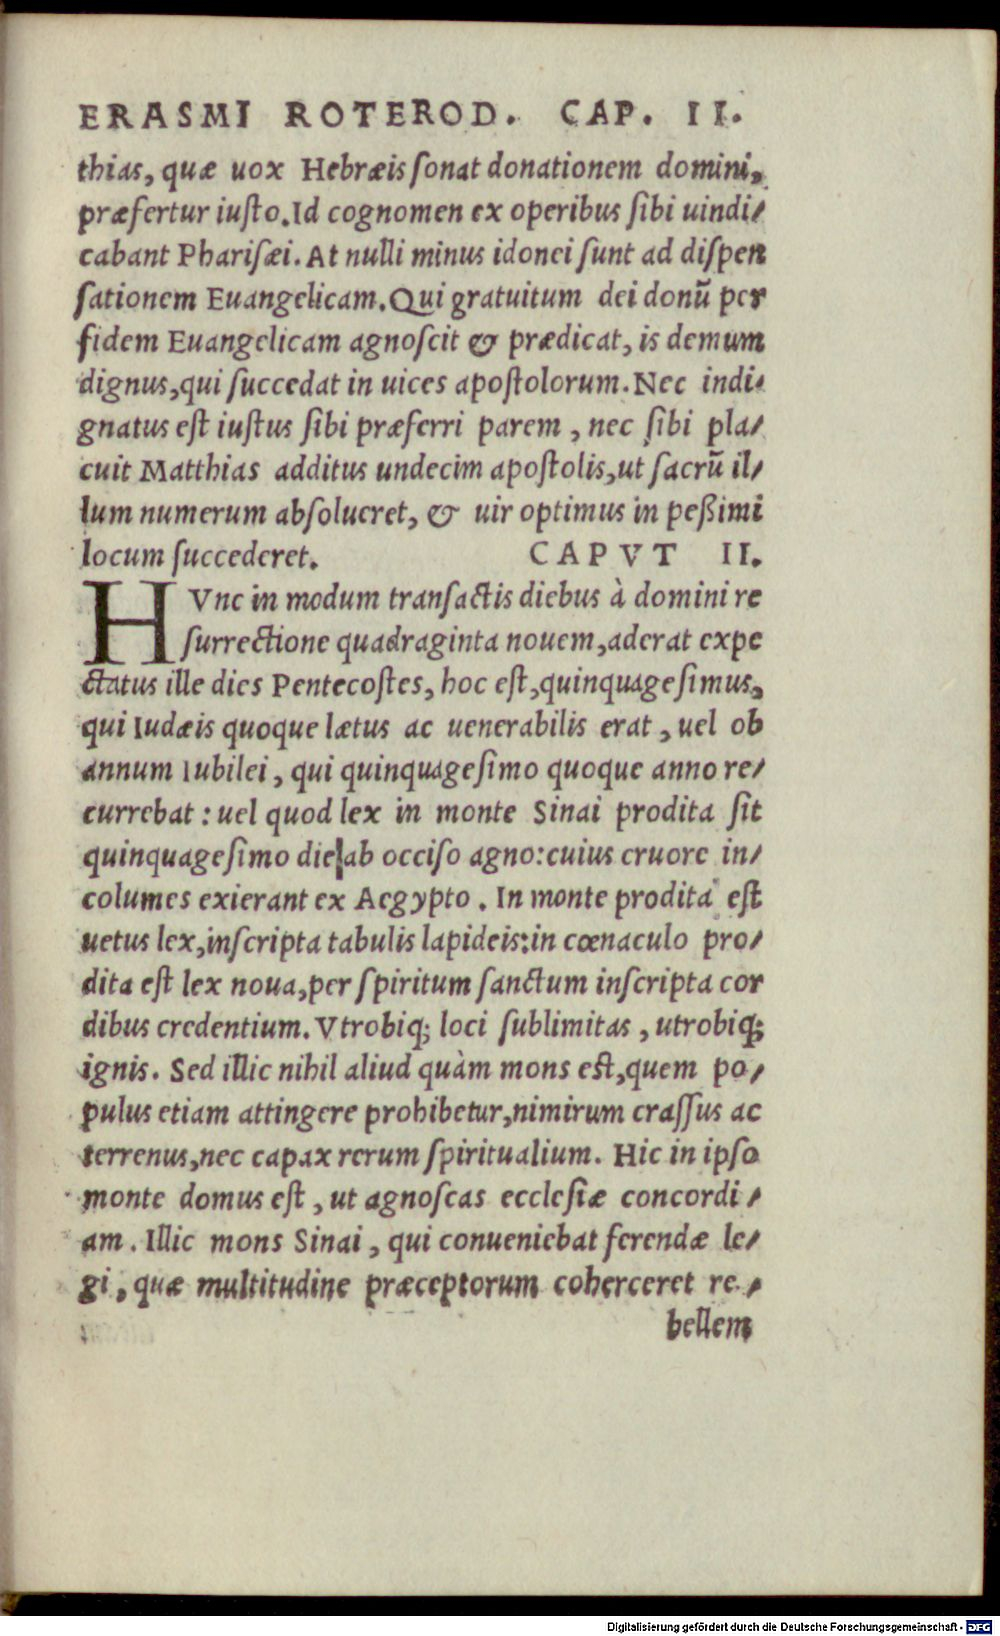 ERASMI ROTEROD. CAP. II.
thias, quæ uox Hebræis sonat donationem domini,
præfertur iusto. Id cognomen ex operibus sibi uindi/
cabant Pharisæi. At nulli minus idonei sunt ad dispen
sationem Euangelicam. Qui gratuitum dei donũ per
fidem Euangelicam agnoscit & prædicat, is demum
dignus, qui succedat in uices apostolorum. Nec indi/
gnatus est iustus sibi præferri parem, nec sibi pla/
cuit Matthias additus undecim apostolis, ut sacrũ il/
lum numerum absolueret, & uir optimus in peßimi
locum succederet. CAPVT II.
HVnc in modum transactis diebus à domini re
surrectione quadraginta nouem, aderat expe
ctatus ille dies Pentecostes, hoc est, quinquagesimus,
qui Iudæis quoque lætus ac uenerabilis erat, uel ob
annum Iubilei, qui quinquagesimo quoque anno re/
currebat: uel quod lex in monte Sinai prodita sit
quinquagesimo die ab occiso agno: cuius cruore in/
columes exierant ex Aegypto. In monte prodita est
uetus lex, inscripta tabulis lapideis: in cœnaculo pro/
dita est lex noua, per spiritum sanctum inscripta cor
dibus credentium. Vtrobiq; loci sublimitas, utrobiq;
ignis. Sed illic nihil aliud quàm mons est, quem po/
pulus etiam attingere prohibetur, nimirum crassus ac
terrenus, nec capax rerum spiritualium. Hic in ipso
monte domus est, ut agnoscas ecclesiæ concordi/
am. Illic mons Sinai, qui conueniebat ferendæ le/
gi, quæ multitudine præceptorum coherceret re/
bellem
Digitalisierung gefördert durch die Deutsche Forschungsgemeinschaft - DFG